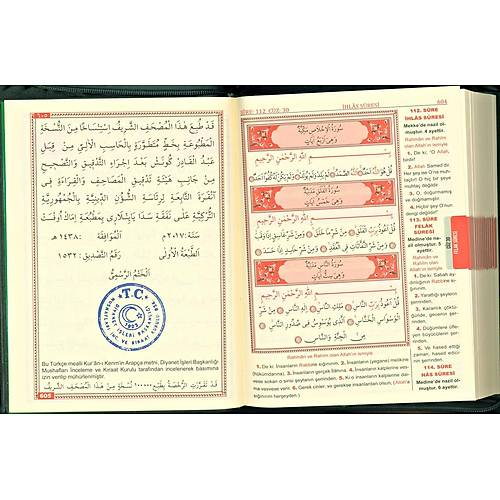 ٦٠٥
قَدْ طُبِعَ هَذَا الْمُصْحَفُ الشَّرِيفُ اِسْتِنْسَاخًا مِنَ النُّسْخَةِ
الْمَطْبُوعَةِ بِخَطٍّ مَنْظُورَةٍ بِالْحَاسِبِ الْآلِيِّ مِنْ قِبَلِ
عَبْدُ الْقَادِرْ كُونَشْ بَعْدَ اِجْرَاءِ التَّدْقِيقِ وَالتَّصْحِيحِ
مِنْ جَانِبِ هَيْئَةِ تَدْقِيقِ الْمَصَاحِفِ وَالْقِرَاءَةِ فِى
أَنْقَرَةَ التَّابِعَةِ لِرِئَاسَةِ الشُّؤُنِ الدِّينِيَّةِ بِالْجُمْهُورِيَّةِ
التُّرْكِيَّةِ عَلَى نَفَقَةِ
سَنَة: ٢٠١٧ الْمُوَافِقَة: ١٤٣٨هـ
اَلطَّبْعَةُ الْأُولَى رَقَمُ التَّصْدِيقِ: ١٥٣٢
اَلْخَتْمُ الرَّسْمِىُّ
T.C.
DİYANET İŞLERİ BAŞKANLIĞI
MUSHAFLARI İNC. VE KIRAAT KURULU
1923
Bu Türkçe mealli Kur'ân-ı Kerim'in Arapça metni, Diyanet İşleri Başkanlığı
Mushafları İnceleme ve Kıraat Kurulu tarafından incelenerek basımına
izin verilip mühürlenmiştir.
605
SÛRE: 112 CÜZ: 30 İHLÂS SÛRESİ 604
سُورَةُ الْإِخْلَاصِ مَكِّيَّةٌ
وَهِىَ اَرْبَعُ اٰيَاتٍ
بِسْمِ اللّٰهِ الرَّحْمٰنِ الرَّحِيمِ
قُلْ هُوَ اللّٰهُ اَحَدٌ اَللّٰهُ الصَّمَدُ لَمْ يَلِدْ وَلَمْ يُولَدْ وَلَمْ يَكُنْ لَهُ كُفُوًا اَحَدٌ
سُورَةُ الْفَلَقِ مَدَنِيَّةٌ
وَهِىَ خَمْسُ اٰيَاتٍ
بِسْمِ اللّٰهِ الرَّحْمٰنِ الرَّحِيمِ
قُلْ اَعُوذُ بِرَبِّ الْفَلَقِ مِنْ شَرِّ مَا خَلَقَ وَمِنْ شَرِّ غَاسِقٍ اِذَا وَقَبَ
وَمِنْ شَرِّ النَّفَّاثَاتِ فِى الْعُقَدِ وَمِنْ شَرِّ حَاسِدٍ اِذَا حَسَدَ
سُورَةُ النَّاسِ مَدَنِيَّةٌ
وَهِىَ سِتُّ اٰيَاتٍ
بِسْمِ اللّٰهِ الرَّحْمٰنِ الرَّحِيمِ
قُلْ اَعُوذُ بِرَبِّ النَّاسِ مَلِكِ النَّاسِ اِلٰهِ النَّاسِ مِنْ شَرِّ
الْوَسْوَاسِ الْخَنَّاسِ اَلَّذِى يُوَسْوِسُ فِى صُدُورِ النَّاسِ
مِنَ الْجِنَّةِ وَالنَّاسِ
Rahmân ve Rahîm olan Allah'ın ismiyle
1. De ki: İnsanların Rabbine sığınırım. 2. İnsanların (yegane) melikine
(hükümdarına). 3. İnsanların gerçek İlâhına. 4. İnsanların kalplerine ves-
vese sokan o sinsi şeytanın şerrinden. 5. Ki o insanların kalplerine daima
vesvese verir. 6. Gerek cinler, ve gerekse insanlardan olsun, (Allah'a
sığınırım) hepsinden.
112. SÛRE
İHLÂS SÛRESİ
Mekke'de nazil ol-
muştur. 4 ayettir.
Rahmân ve Rahîm
olan Allah'ın ismiyle
1. De ki; "O Allah,
birdir!
2. Allah Samed'dir.
3. O, doğurmamış
ve doğmamıştır.
4. Hiçbir şey O'nun
dengi değildir!"
113. SÛRE
FELAK
SÛRESİ
Medine'de na-
zil olmuştur. 5
ayettir.
Rahmân ve
Rahîm olan
Allah'ın ismiyle
1. De ki: Sabah ay-
dınlığının Rabbine sı-
ğınırım.
2. Yarattığı şeylerin
şerrinden.
3. Karanlık çöktüğü
zaman, gecenin şer-
rinden.
4. Düğümlere üfle-
yen büyücülerin şer-
rinden.
5. Ve hased ettiği
zaman, hased edici-
nin şerrinden.
114. SÛRE
NÂS SÛRESİ
Medine'de nazil ol-
muştur. 6 ayettir.